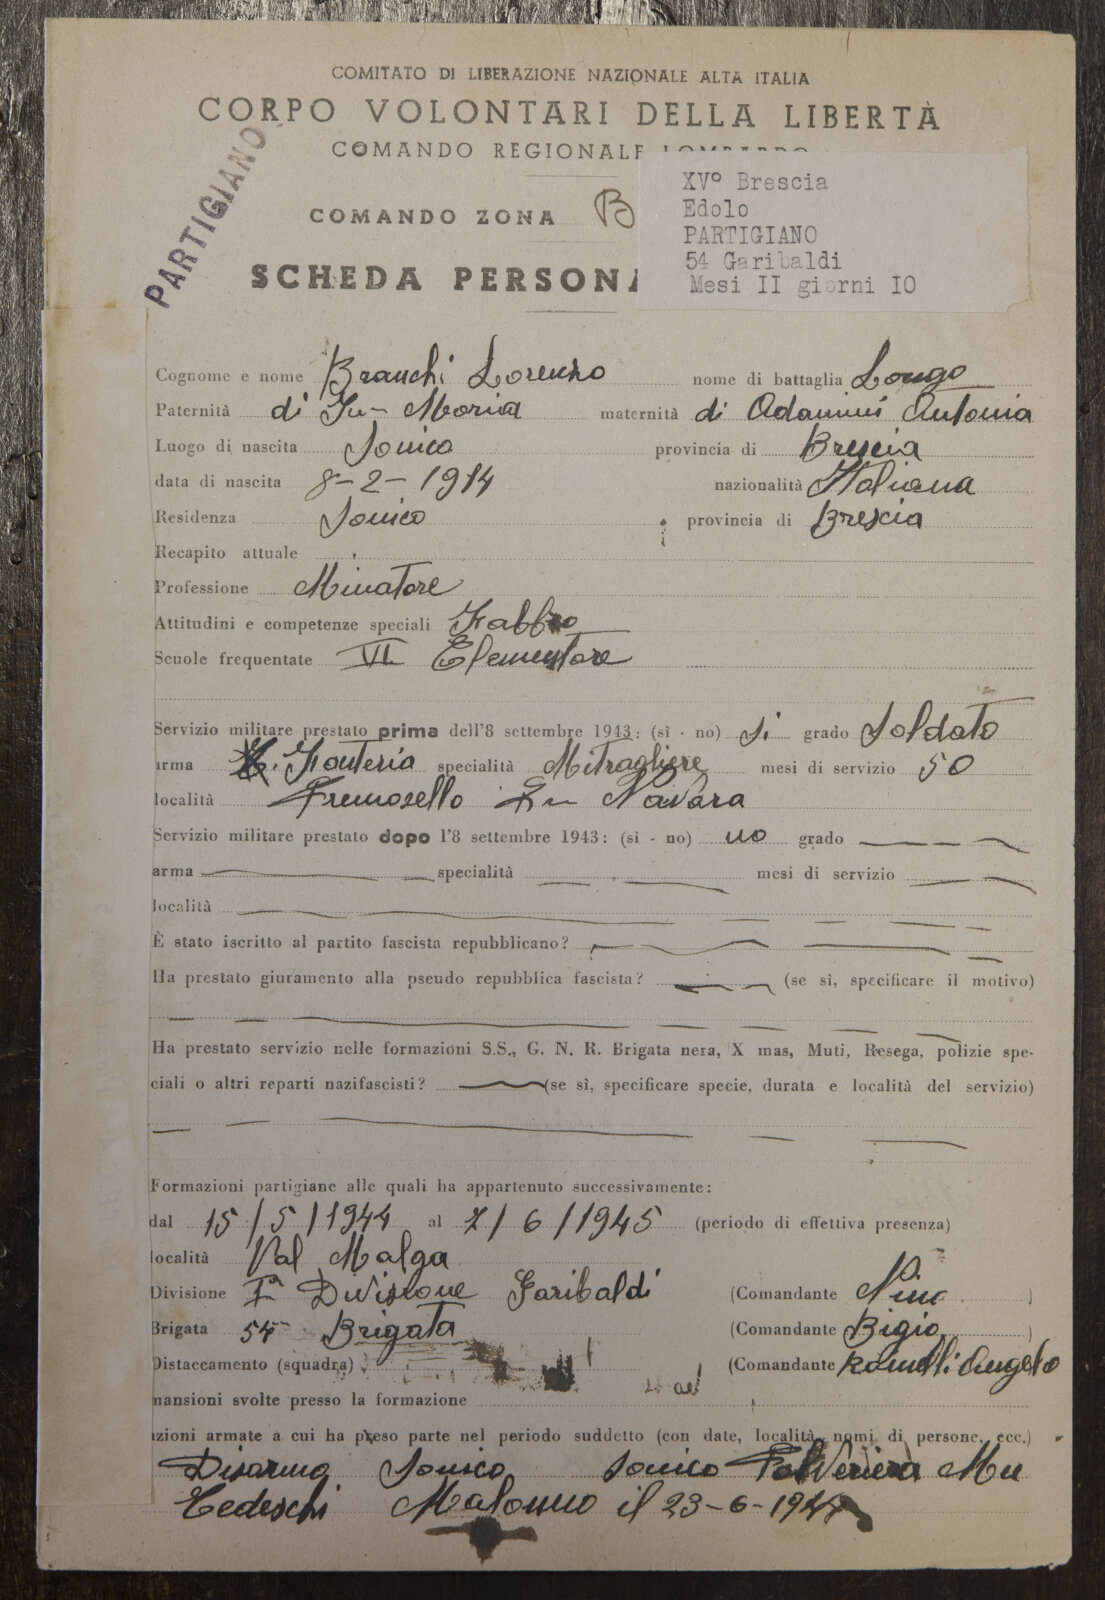 COMITATO DI LIBERAZIONE NAZIONALE ALTA ITALIA
CORPO VOLONTARI DELLA LIBERTÀ
COMANDO REGIONALE LOMBARDO
PARTIGIANO
COMANDO ZONA B
XV° Brescia
Edolo
PARTIGIANO
54 Garibaldi
Mesi II giorni IO
SCHEDA PERSONA
Cognome e nome Branchi Lorenzo nome di battaglia Longo
Paternità di Fu - Maria maternità di Adamini Antonia
Luogo di nascita Sonico provincia di Brescia
data di nascita 8-2-1914 nazionalità Italiana
Residenza Sonico provincia di Brescia
Recapito attuale
Professione Minatore
Attitudini e competenze speciali Fabbro
Scuole frequentate VI Elementare
Servizio militare prestato prima dell'8 settembre 1943: (sì - no) Si grado Soldato
arma Fanteria specialità Mitragliere mesi di servizio 50
località Premosello Navara
Servizio militare prestato dopo l'8 settembre 1943: (sì - no) no grado
arma specialità mesi di servizio
località
È stato iscritto al partito fascista repubblicano?
Ha prestato giuramento alla pseudo repubblica fascista? (se sì, specificare il motivo)
Ha prestato servizio nelle formazioni S.S., G. N. R. Brigata nera, X mas, Muti, Resega, polizie spe-
ciali o altri reparti nazifascisti? (se sì, specificare specie, durata e località del servizio)
Formazioni partigiane alle quali ha appartenuto successivamente:
dal 15/5/1944 al 7/6/1945 (periodo di effettiva presenza)
località Val Malga
Divisione Iª Divisione Garibaldi (Comandante Nino )
Brigata 54 Brigata (Comandante Bigio )
Distaccamento (squadra) (Comandante Angelo
mansioni svolte presso la formazione
azioni armate a cui ha preso parte nel periodo suddetto (con date, località, nomi di persone, ecc.)
Disarmo Sonico Sonico Polveriera
Tedeschi Malonno il 23-6-194